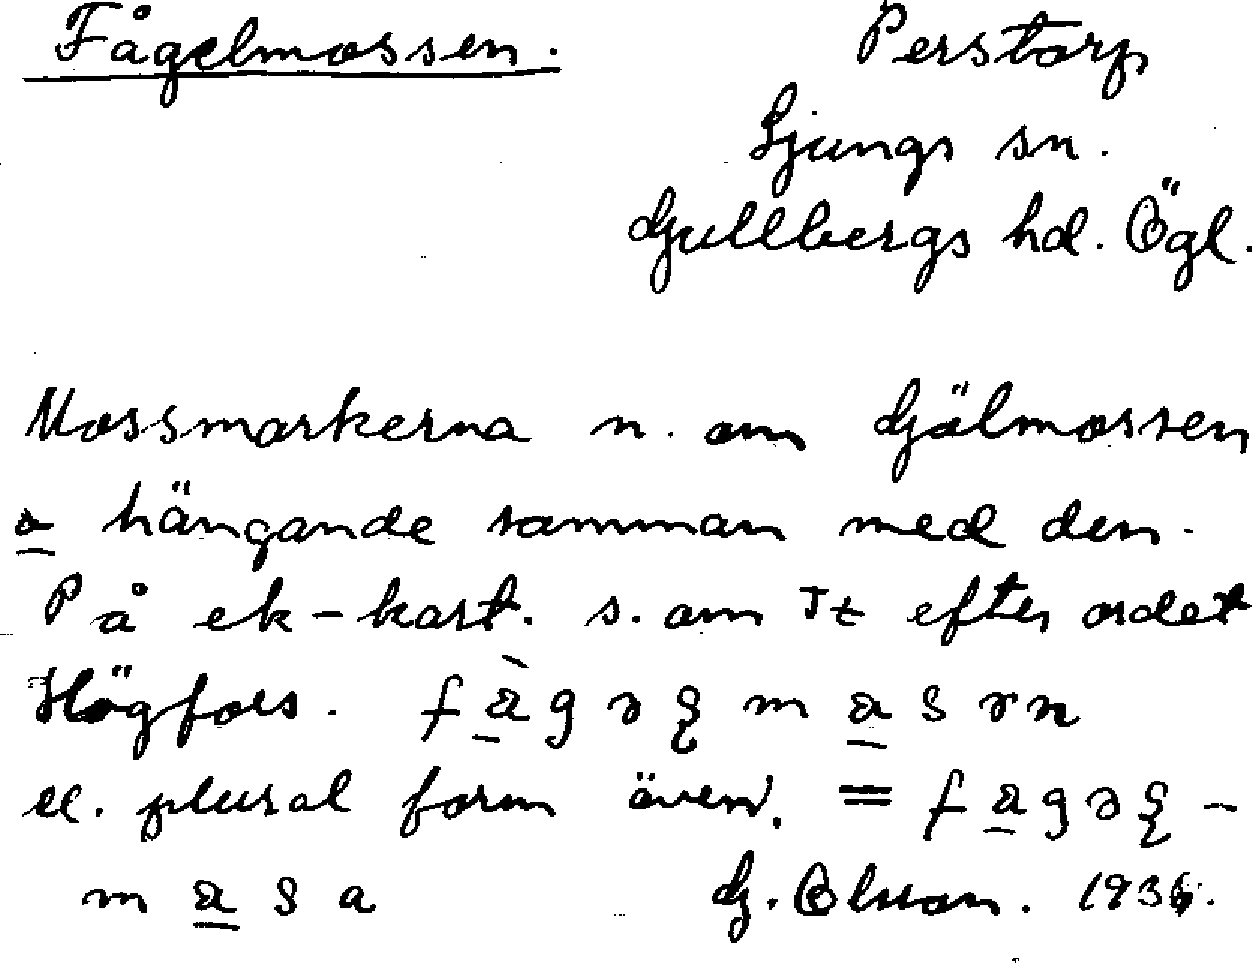 Fågelmossen. Perstorp
Ljungs sn.
Gullbergs hd. Ögl.
Mossmarkerna n. om Gjälmossen
o hängande samman med den.
På ek-kart. s. om Tt efter ordet
Högfors. f à̱ g ə ȩ m a̱ s ə n
el. plural form även. = f a̱ g ə ȩ -
m a̱ s a G. Olsson. 1936.